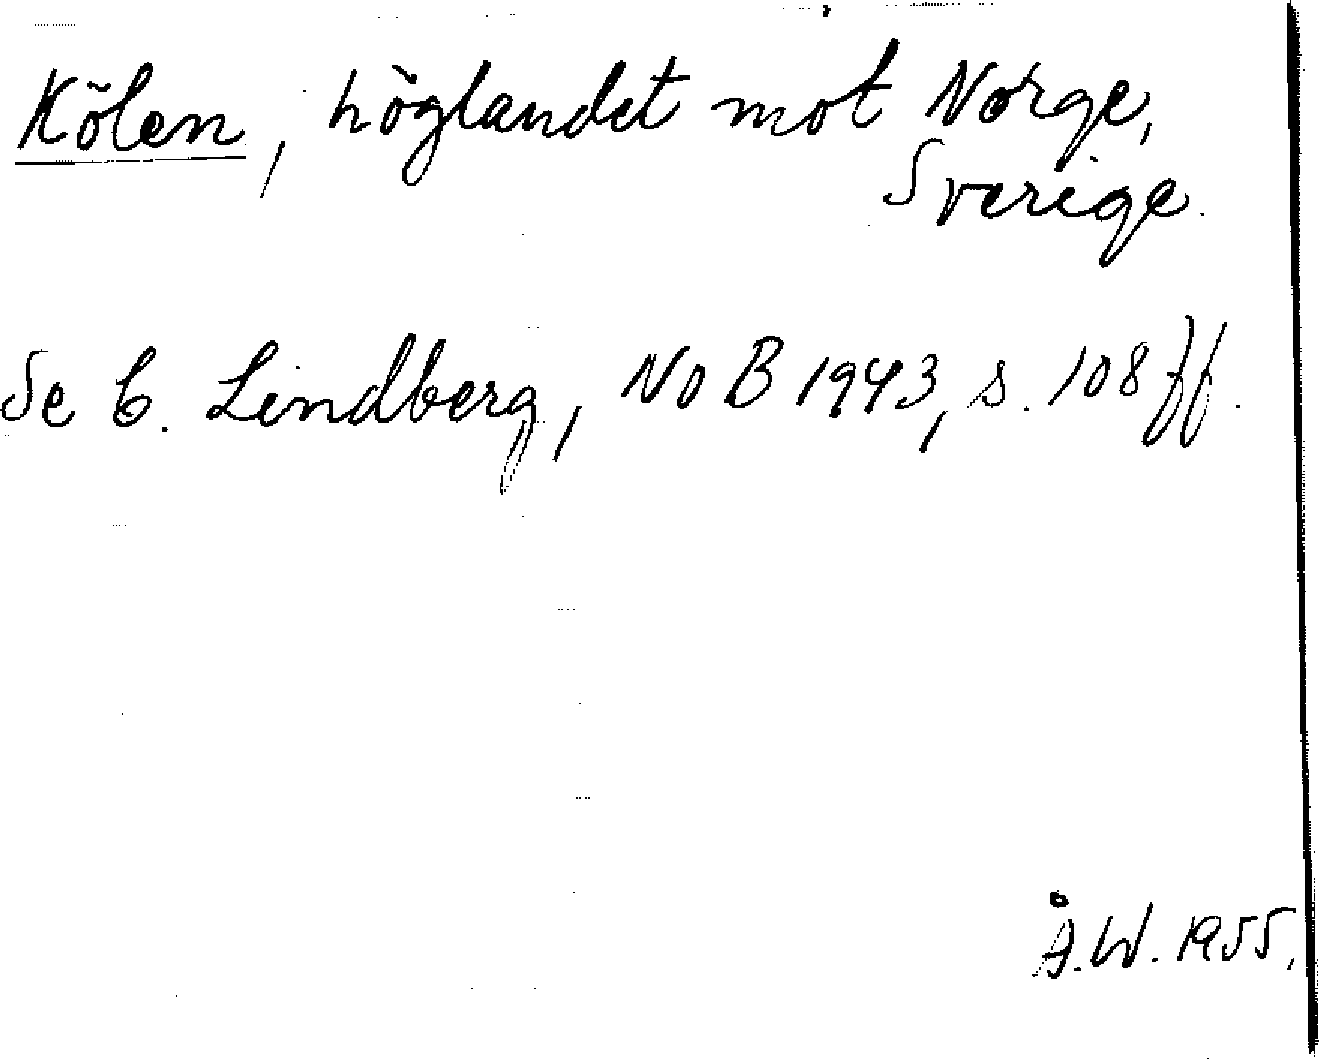 Kölen, höglandet mot Norge,
Sverige.
Se C. Lindberg, NoB 1943, s. 108 ff.
Å.W. 1955.